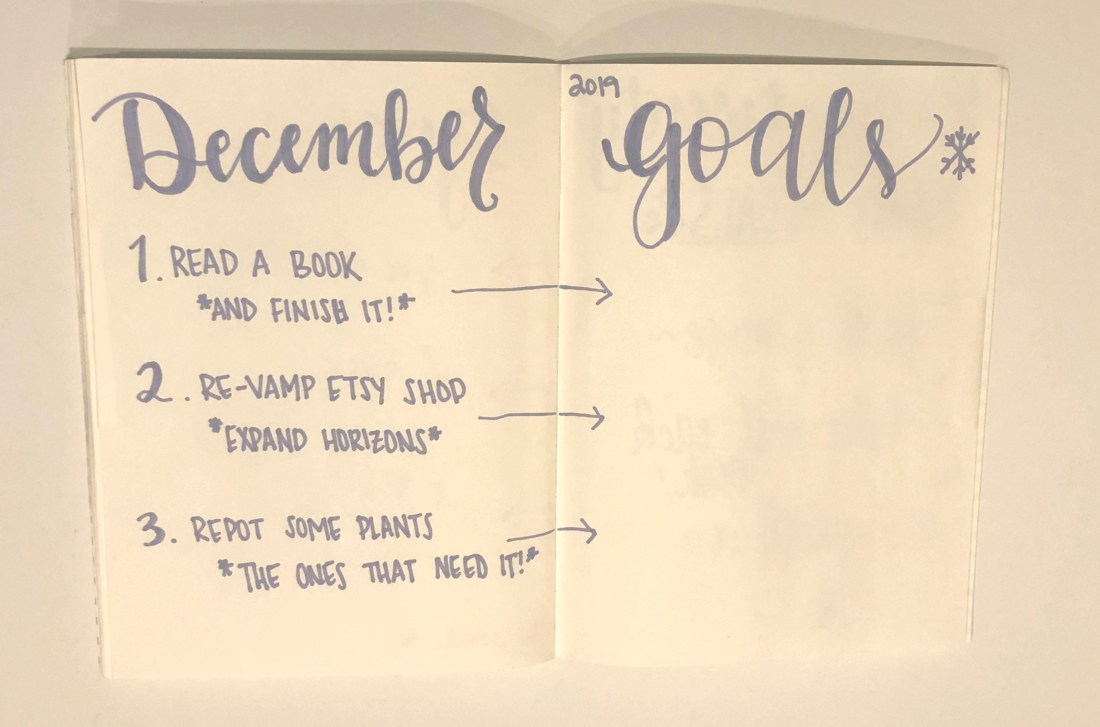 December
2019
goals
1. READ A BOOK
*AND FINISH IT!*
2. RE-VAMP ETSY SHOP
*EXPAND HORIZONS*
3. REPOT SOME PLANTS
*THE ONES THAT NEED IT!*